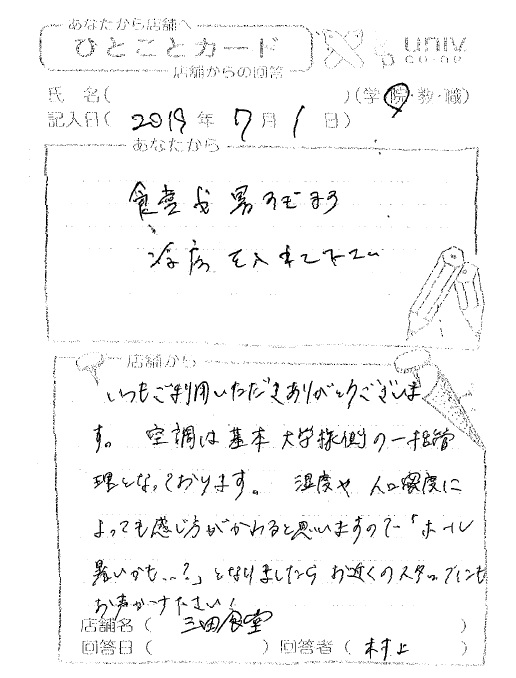 あなたから店舗へ
ひとことカード
店舗からの回答
univ.
CO-OP
氏 名( )(学・院・教・職)
記入日( 2019 年 7 月 1 日)
あなたから
食堂
冷房を入れて下さい
店舗から
いつもご利用いただきありがとうございま
す。 空調は基本大学様側の一括管
理となっております。 湿度や人口密度に
よっても感じ方がかわると思いますので「ホール
暑いかも...?」となりましたらお近くのスタッフにも
お声かけください!
店舗名( 三田食堂 )
回答日( )回答者( 村上 )